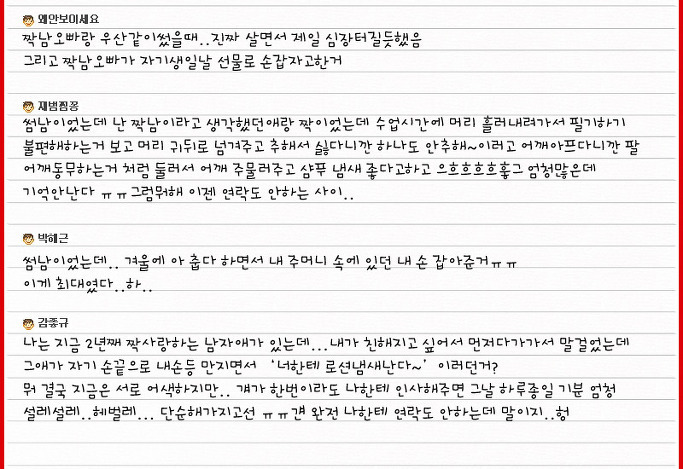 왜안보이세요
짝남오빠랑 우산같이썼을때..진짜 살면서 제일 심장터질듯했음
그리고 짝남오빠가 자기생일날 선물로 손잡자고한거
재범찜꽁
썸남이었는데 난 짝남이라고 생각했던애랑 짝이었는데 수업시간에 머리 흘러내려가서 필기하기
불편해하는거 보고 머리 귀뒤로 넘겨주고 추해서 싫다니깐 하나도 안추해~이러고 어깨아프다니깐 팔
어깨동무하는거 처럼 둘러서 어깨 주물러주고 샴푸 냄새 좋다고하고 으흐흐흐흐훟그 엄청많은데
기억안난다 ㅠㅠ그럼뭐해 이젠 연락도 안하는 사이..
박혜근
썸남이었는데.. 겨울에 아 춥다 하면서 내 주머니 속에 있던 내 손 잡아준거ㅠㅠ
이게 최대였다..하..
감좋규
나는 지금 2년째 짝사랑하는 남자애가 있는데...내가 친해지고 싶어서 먼저다가가서 말걸었는데
그애가 자기 손끝으로 내손등 만지면서 '너한테 로션냄새난다~' 이러던거?
뭐 결국 지금은 서로 어색하지만.. 걔가 한번이라도 나한테 인사해주면 그날 하루종일 기분 엄청
설레설레..헤벌레... 단순해가지고선 ㅠㅠ걘 완전 나한테 연락도 안하는데 말이지..헝